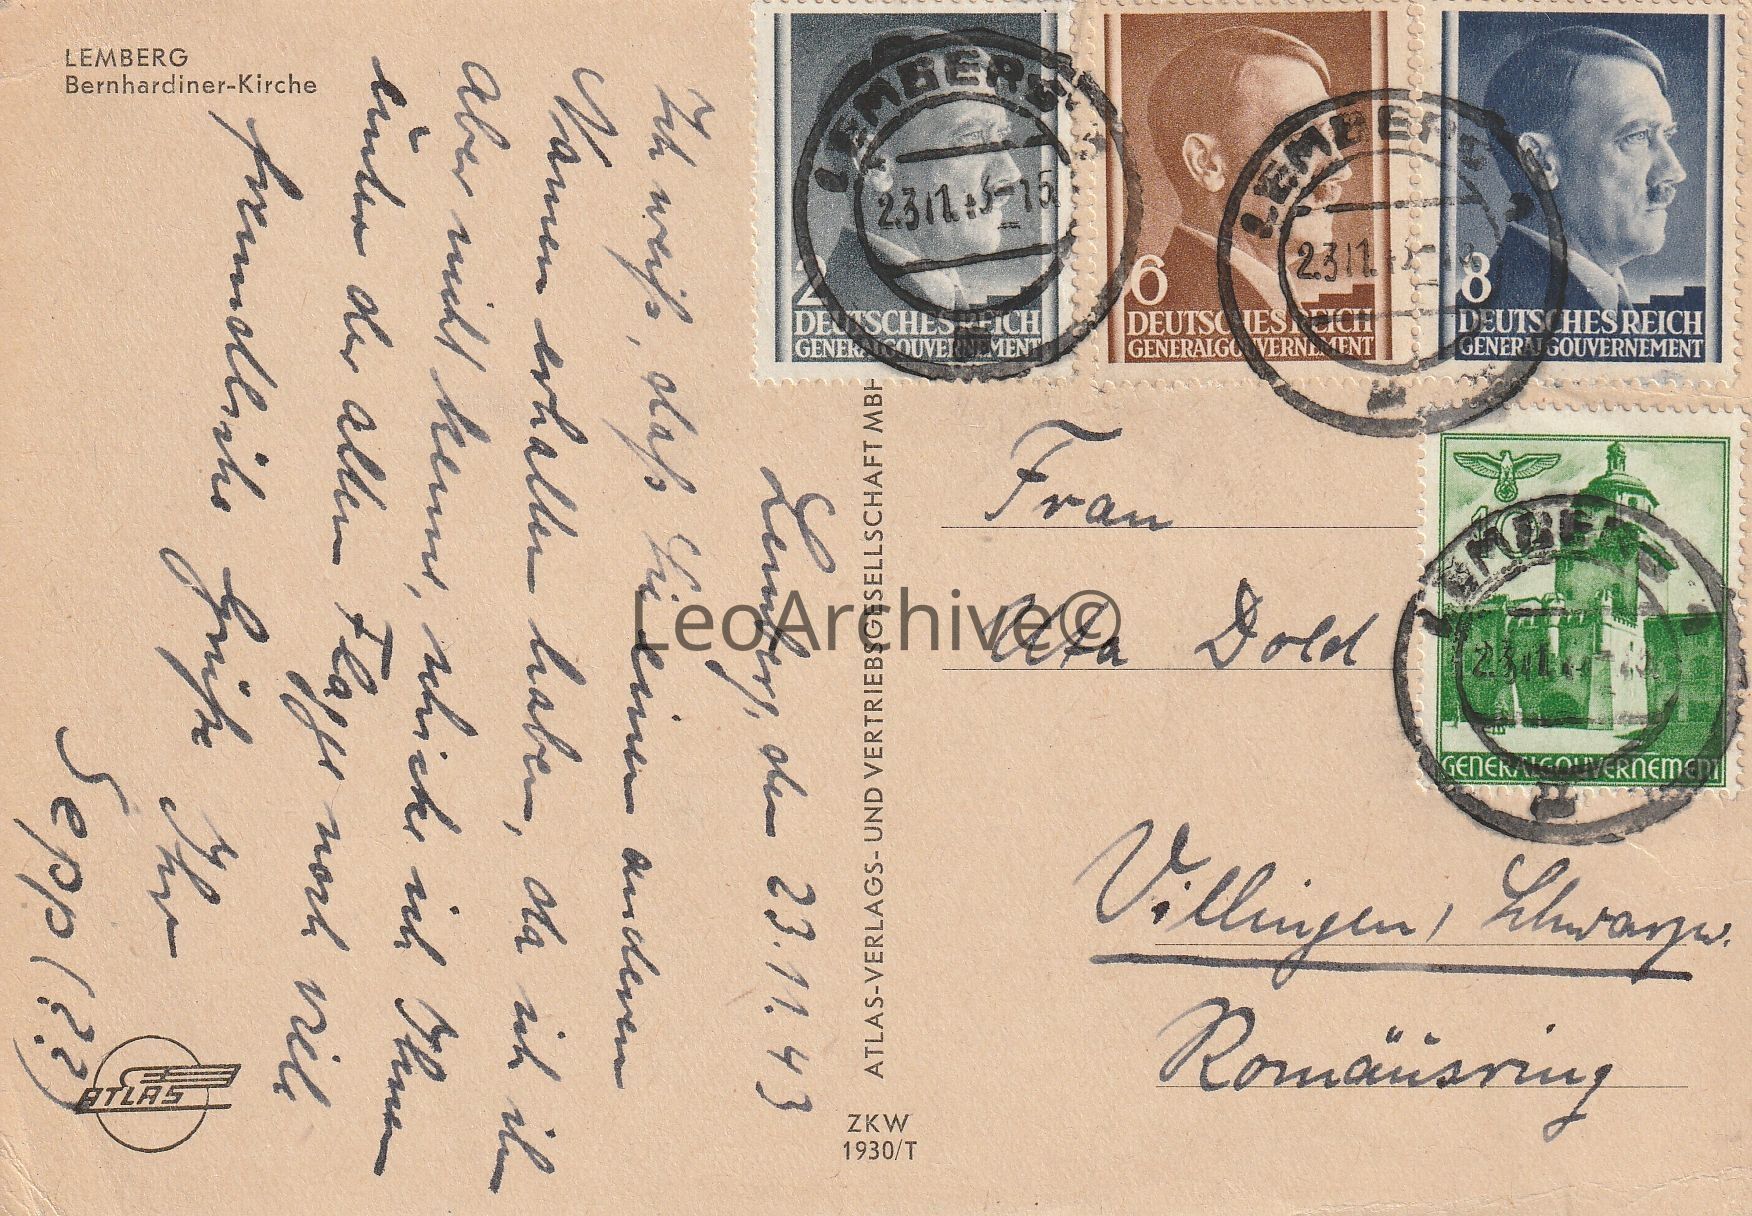 LEMBERG
Bernhardiner-Kirche
Lemberg, den 23.11.43
Ich weiß, daß Sie einen anderen
Namen erhalten haben, da ich ihn
aber nicht kenne, schicke ich Ihnen
unter der alten Flagge noch viele
freundliche Grüße Ihr
Sepp (??)
ATLAS
ATLAS-VERLAGS- UND VERTRIEBSGESELLSCHAFT MBH
ZKW
1930/T
2
DEUTSCHES REICH
GENERALGOUVERNEMENT
6
DEUTSCHES REICH
GENERALGOUVERNEMENT
8
DEUTSCHES REICH
GENERALGOUVERNEMENT
10
GENERALGOUVERNEMENT
LEMBERG
23.11.43-15
LEMBERG
23.11.43
LEMBERG
23.11.
Frau
Uta Dold
Villingen, Schwarzw.
Romäusring
LeoArchive©